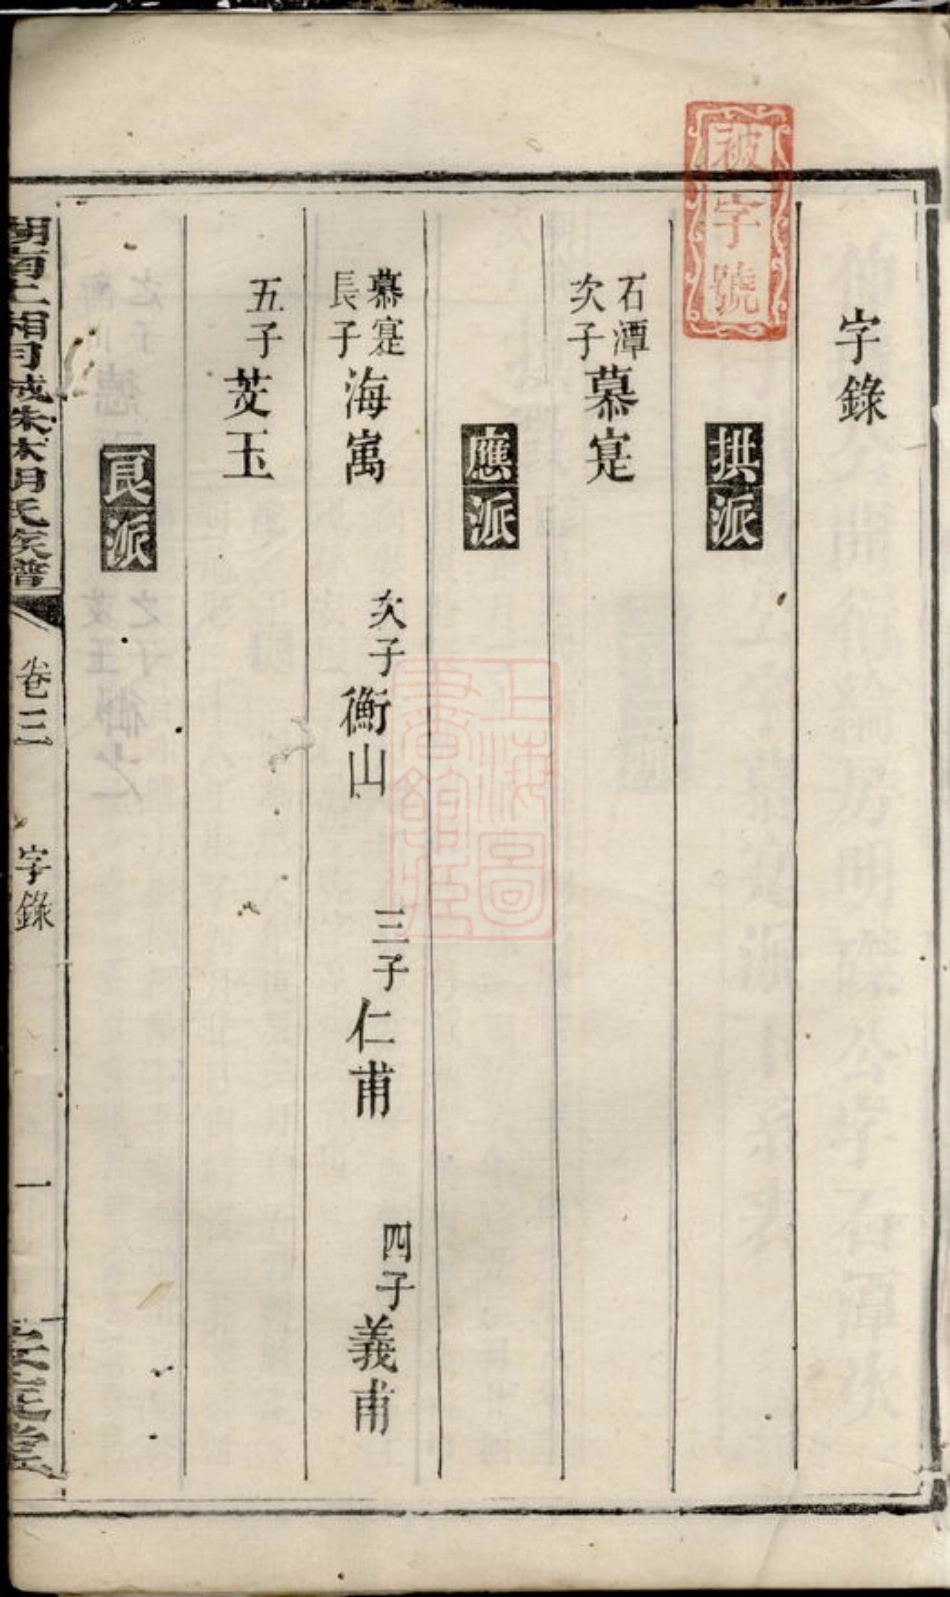 被字號
字錄
拱派
石潭次子慕寔
應派
慕寔長子海嵩 次子衡山 三子仁甫 四子義甫
五子芰玉
艮派
卷三 字錄 一
上海圖書館藏